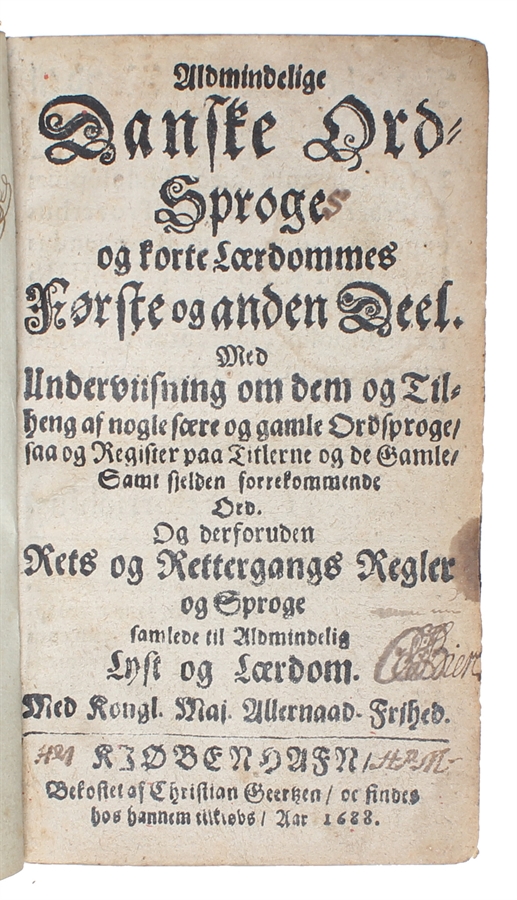 Aldmindelige
Danske Ord-
Sproge
og korte Lærdommes
Første og anden Deel.
Med
Underviisning om dem og Til-
heng af nogle sære og gamle Ordsproge/
saa og Register paa Titlerne og de Gamle/
Samt sielden forrekommende
Ord.
Og derforuden
Rets og Rettergangs Regler
og Sproge
samlede til Aldmindelig
Lyst og Lærdom.
Med Kongl. Maj. Allernaad. Frihed.
KIØBENHAFN/
Bekostet af Christian Geertzen/ oc findes
hos hannem tilkiøbs/ Aar 1688.